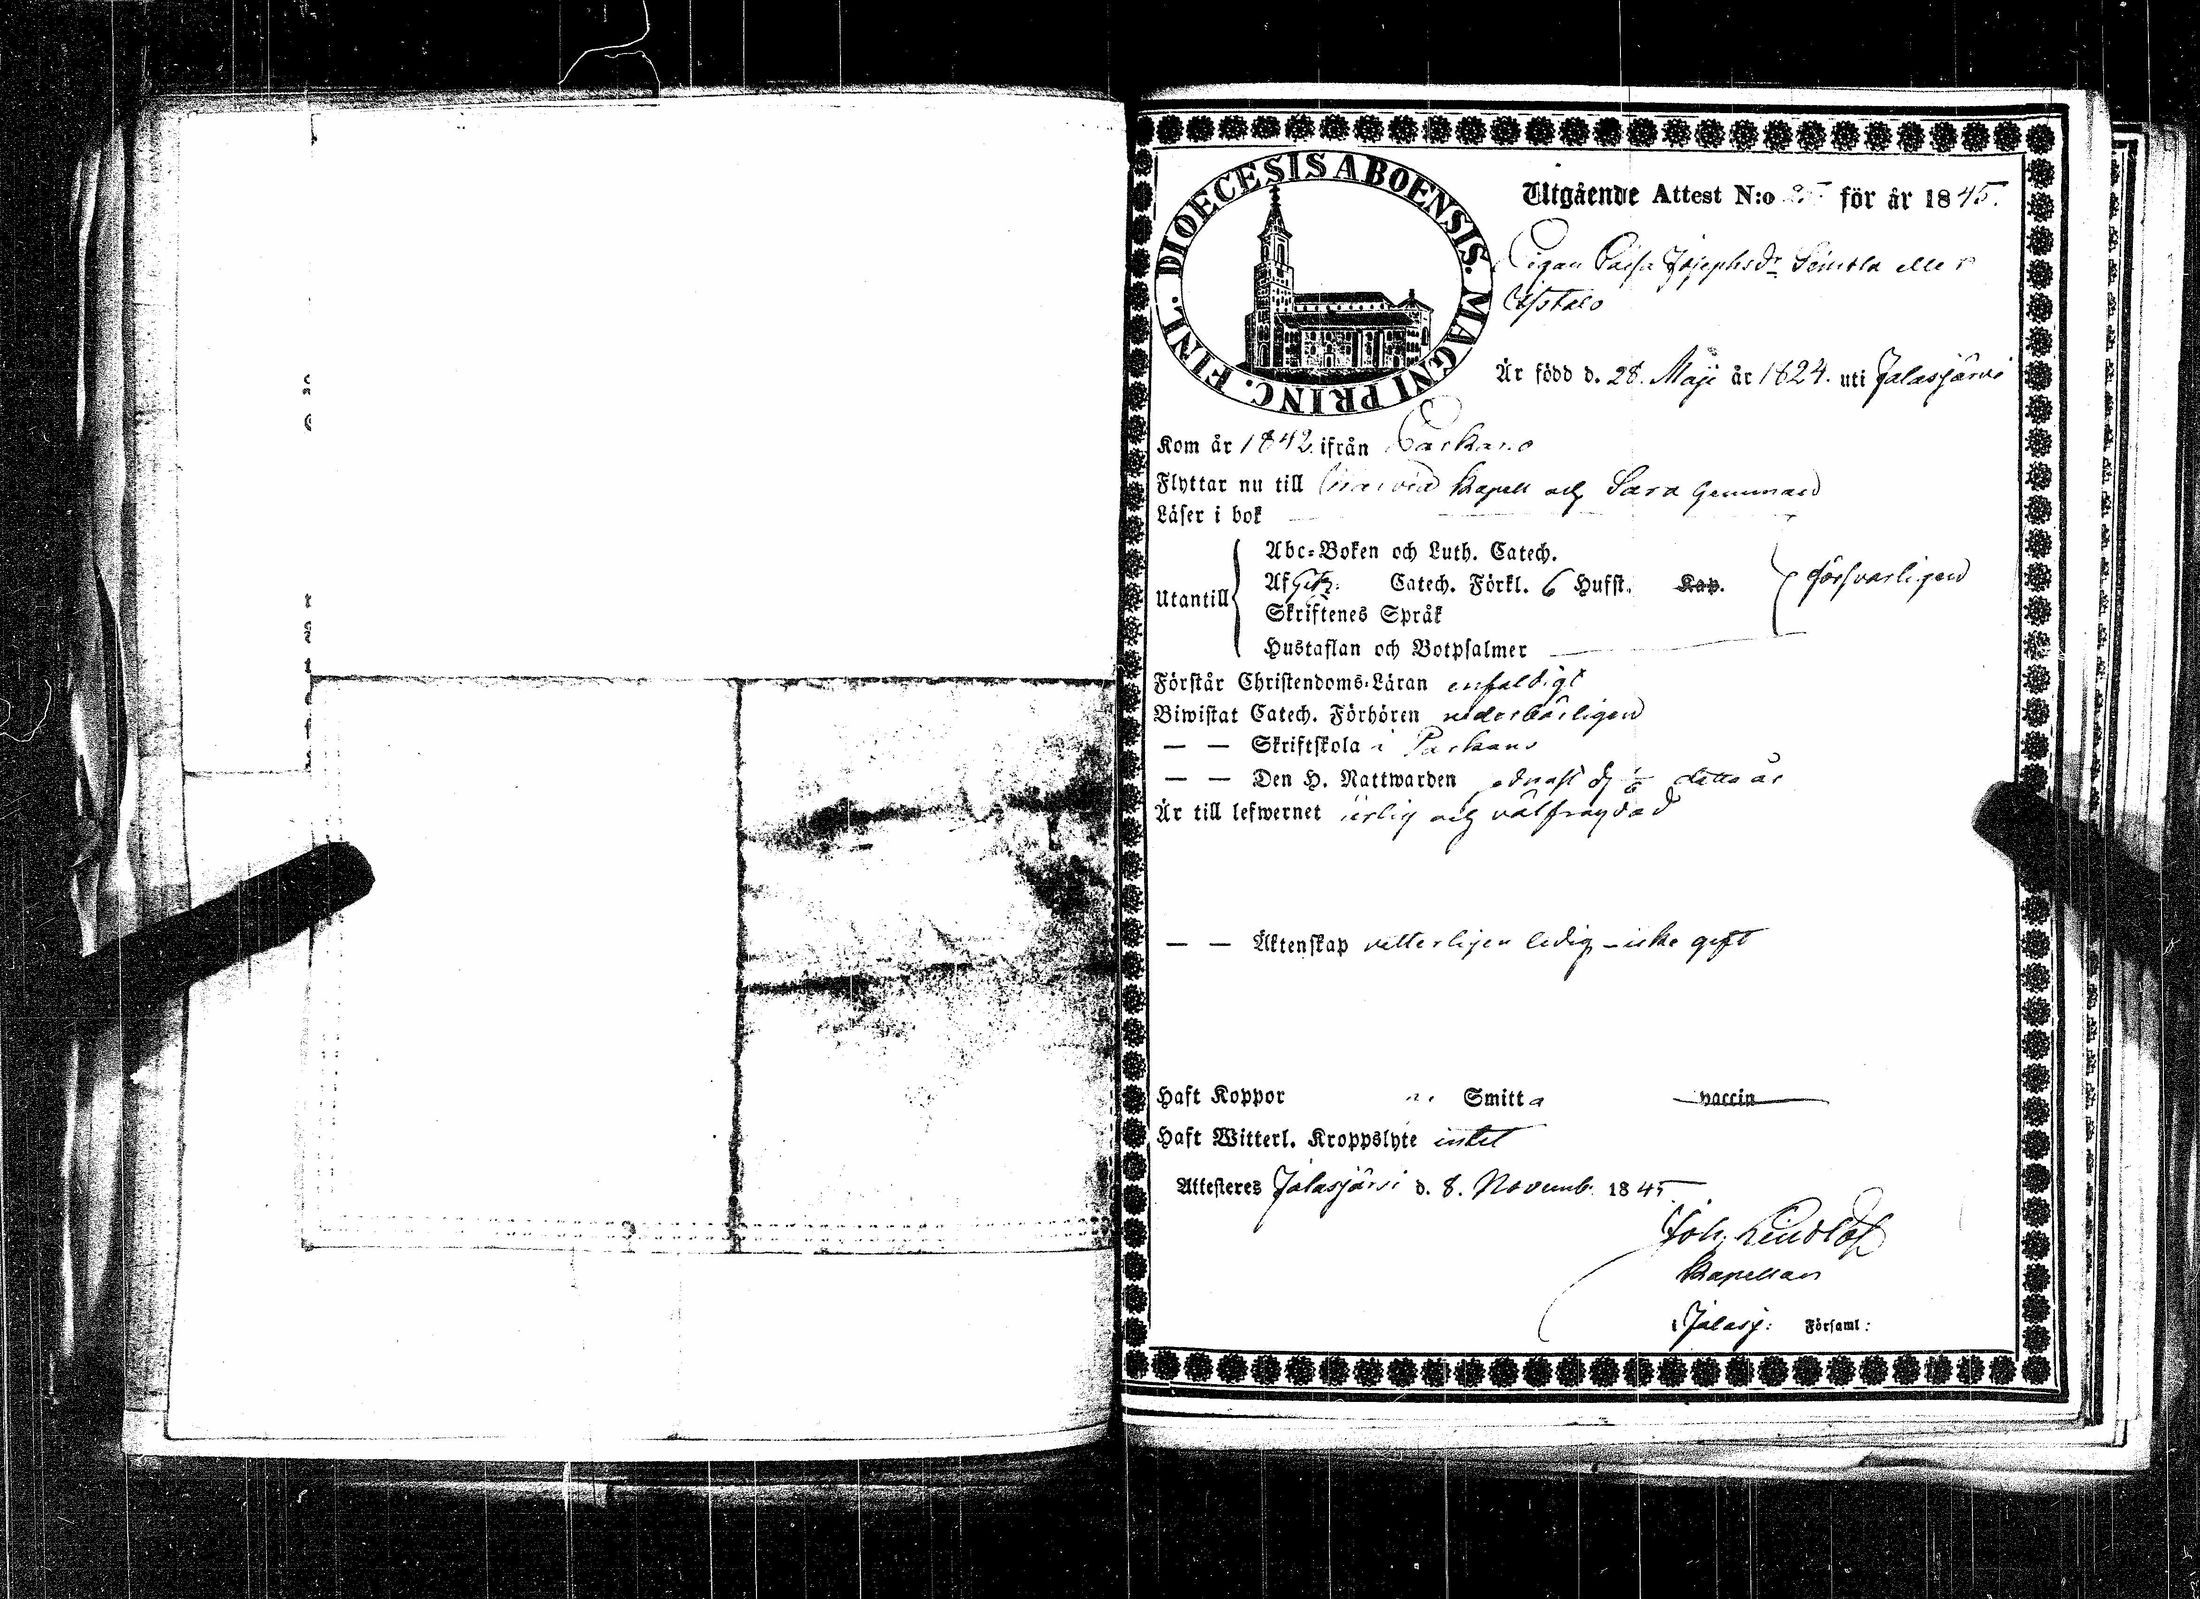 DIOECESIS ABOENSIS. MAGNI PRINC. FINL.
Utgående Attest N:o för år 1845.
Pigan Caisa Josephsdr Seinola eller
Är född d. 28. Maji år 1824. uti Jalasjärvi
Kom år 1842. ifrån Parkano
Flyttar nu till kapell och Sara
Läser i bok
Abc-Boken och Luth. Catech.
Utantill Af Catech. Förkl. 6 Husst. Kap. försvarligen
Skriftenes Språk
Hustaflan och Botpsalmer
Förstår Christendoms-Läran enfaldigt
Biwistat Catech. Förhören vederbörligen
— — Skriftskola i Parkano
— — Den H. Nattwarden detta år
Är till lefwernet ärlig och välfrägdad
— — Äktenskap vetterligen ledig – icke gift
Haft Koppor Smitta vaccin
Haft Witterl. Kroppslyte intet
Attesteres Jalasjärvi d. 8. Novemb. 1845
Joh. Lindlöf
Kapellan
i Jalasj: Församl: